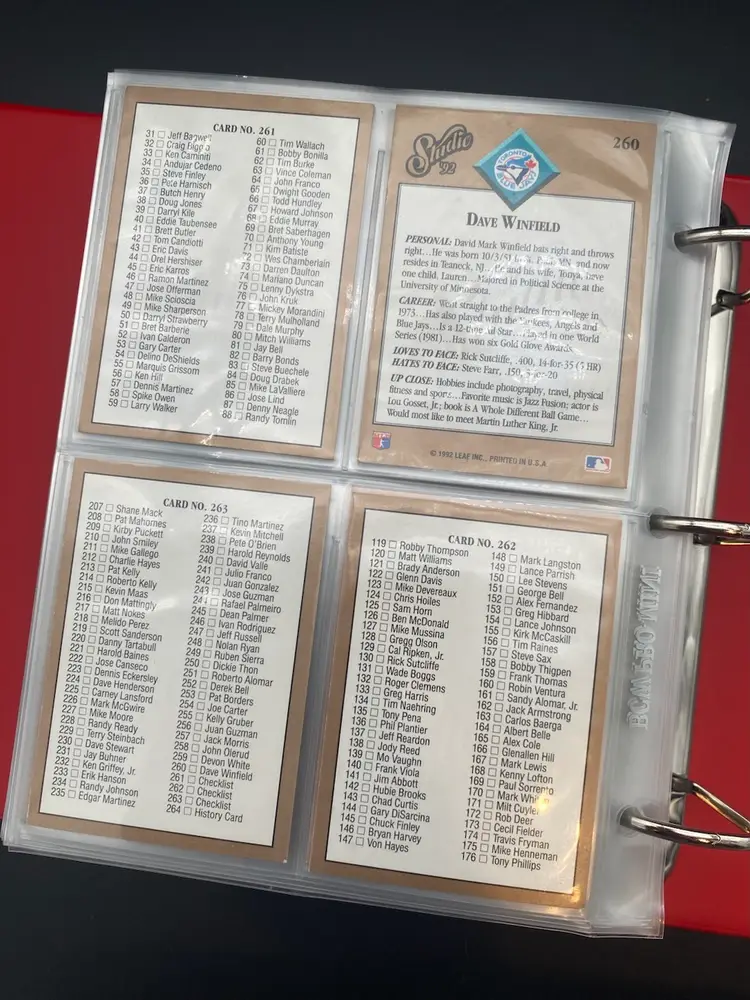 CARD NO. 261
31 Jeff Bagwell
32 Craig Biggio
33 Ken Caminiti
34 Andujar Cedeno
35 Steve Finley
36 Pete Harnisch
37 Butch Henry
38 Doug Jones
39 Darryl Kile
40 Eddie Taubensee
41 Brett Butler
42 Tom Candiotti
43 Eric Davis
44 Orel Hershiser
45 Eric Karros
46 Ramon Martinez
47 Jose Offerman
48 Mike Scioscia
49 Mike Sharperson
50 Darryl Strawberry
51 Bret Barberie
52 Ivan Calderon
53 Gary Carter
54 Delino DeShields
55 Marquis Grissom
56 Ken Hill
57 Dennis Martinez
58 Spike Owen
59 Larry Walker
60 Tim Wallach
61 Bobby Bonilla
62 Tim Burke
63 Vince Coleman
64 John Franco
65 Dwight Gooden
66 Todd Hundley
67 Howard Johnson
68 Eddie Murray
69 Bret Saberhagen
70 Anthony Young
71 Kim Batiste
72 Wes Chamberlain
73 Darren Daulton
74 Mariano Duncan
75 Lenny Dykstra
76 John Kruk
77 Mickey Morandini
78 Terry Mulholland
79 Dale Murphy
80 Mitch Williams
81 Jay Bell
82 Barry Bonds
83 Steve Buechele
84 Doug Drabek
85 Mike LaValliere
86 Jose Lind
87 Denny Neagle
88 Randy Tomlin
Studio '92
260
TORONTO
BLUE JAYS
DAVE WINFIELD
PERSONAL: David Mark Winfield bats right and throws
right... He was born 10/3/51 in St. Paul, MN and now
resides in Teaneck, NJ... He and his wife, Tonya, have
one child, Lauren... Majored in Political Science at the
University of Minnesota.
CAREER: Went straight to the Padres from college in
1973... Has also played with the Yankees, Angels and
Blue Jays... Is a 12-time All Star... Played in one World
Series (1981)... Has won six Gold Glove Awards.
LOVES TO FACE: Rick Sutcliffe, .400, 14-for-35 (5 HR)
HATES TO FACE: Steve Farr, .150, 3-for-20
UP CLOSE: Hobbies include photography, travel, physical
fitness and sports... Favorite music is Jazz Fusion; actor is
Lou Gosset, Jr.; book is A Whole Different Ball Game...
Would most like to meet Martin Luther King, Jr.
© 1992 LEAF INC., PRINTED IN U.S.A.
CARD NO. 263
207 Shane Mack
208 Pat Mahomes
209 Kirby Puckett
210 John Smiley
211 Mike Gallego
212 Charlie Hayes
213 Pat Kelly
214 Roberto Kelly
215 Kevin Maas
216 Don Mattingly
217 Matt Nokes
218 Melido Perez
219 Scott Sanderson
220 Danny Tartabull
221 Harold Baines
222 Jose Canseco
223 Dennis Eckersley
224 Dave Henderson
225 Carney Lansford
226 Mark McGwire
227 Mike Moore
228 Randy Ready
229 Terry Steinbach
230 Dave Stewart
231 Jay Buhner
232 Ken Griffey, Jr.
233 Erik Hanson
234 Randy Johnson
235 Edgar Martinez
236 Tino Martinez
237 Kevin Mitchell
238 Pete O'Brien
239 Harold Reynolds
240 David Valle
241 Julio Franco
242 Juan Gonzalez
243 Jose Guzman
244 Rafael Palmeiro
245 Dean Palmer
246 Ivan Rodriguez
247 Jeff Russell
248 Nolan Ryan
249 Ruben Sierra
250 Dickie Thon
251 Roberto Alomar
252 Derek Bell
253 Pat Borders
254 Joe Carter
255 Kelly Gruber
256 Juan Guzman
257 Jack Morris
258 John Olerud
259 Devon White
260 Dave Winfield
261 Checklist
262 Checklist
263 Checklist
264 History Card
CARD NO. 262
119 Robby Thompson
120 Matt Williams
121 Brady Anderson
122 Glenn Davis
123 Mike Devereaux
124 Chris Hoiles
125 Sam Horn
126 Ben McDonald
127 Mike Mussina
128 Gregg Olson
129 Cal Ripken, Jr.
130 Rick Sutcliffe
131 Wade Boggs
132 Roger Clemens
133 Greg Harris
134 Tim Naehring
135 Tony Pena
136 Phil Plantier
137 Jeff Reardon
138 Jody Reed
139 Mo Vaughn
140 Frank Viola
141 Jim Abbott
142 Hubie Brooks
143 Chad Curtis
144 Gary DiSarcina
145 Chuck Finley
146 Bryan Harvey
147 Von Hayes
148 Mark Langston
149 Lance Parrish
150 Lee Stevens
151 George Bell
152 Alex Fernandez
153 Greg Hibbard
154 Lance Johnson
155 Kirk McCaskill
156 Tim Raines
157 Steve Sax
158 Bobby Thigpen
159 Frank Thomas
160 Robin Ventura
161 Sandy Alomar, Jr.
162 Jack Armstrong
163 Carlos Baerga
164 Albert Belle
165 Alex Cole
166 Glenallen Hill
167 Mark Lewis
168 Kenny Lofton
169 Paul Sorrento
170 Mark Whiten
171 Milt Cuyler
172 Rob Deer
173 Cecil Fielder
174 Travis Fryman
175 Mike Henneman
176 Tony Phillips